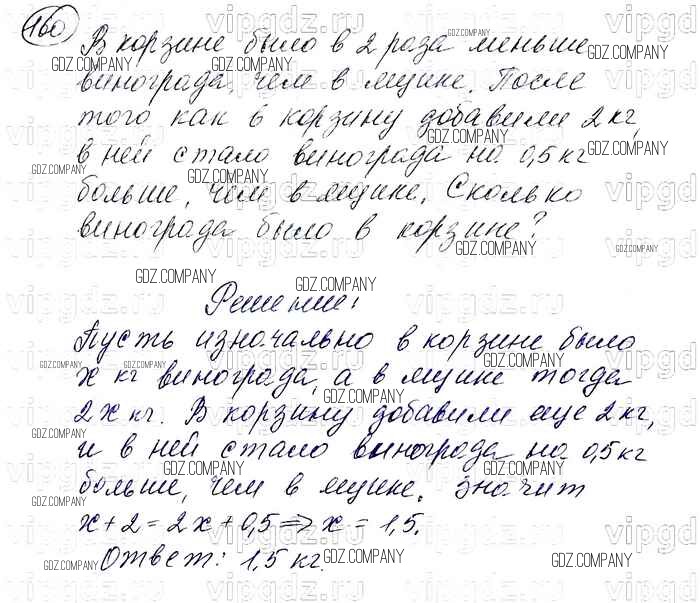 160 В корзине было в 2 раза меньше
винограда, чем в ящике. После
того как в корзину добавили 2 кг,
в ней стало винограда на 0,5 кг
больше, чем в ящике. Сколько
винограда было в корзине?
Решение:
Пусть изначально в корзине было
x кг винограда, а в ящике тогда
2x кг. В корзину добавили еще 2 кг,
и в ней стало винограда на 0,5 кг
больше, чем в ящике. Значит
x + 2 = 2x + 0,5 => x = 1,5.
Ответ: 1,5 кг.
GDZ.COMPANY
vipgdz.ru